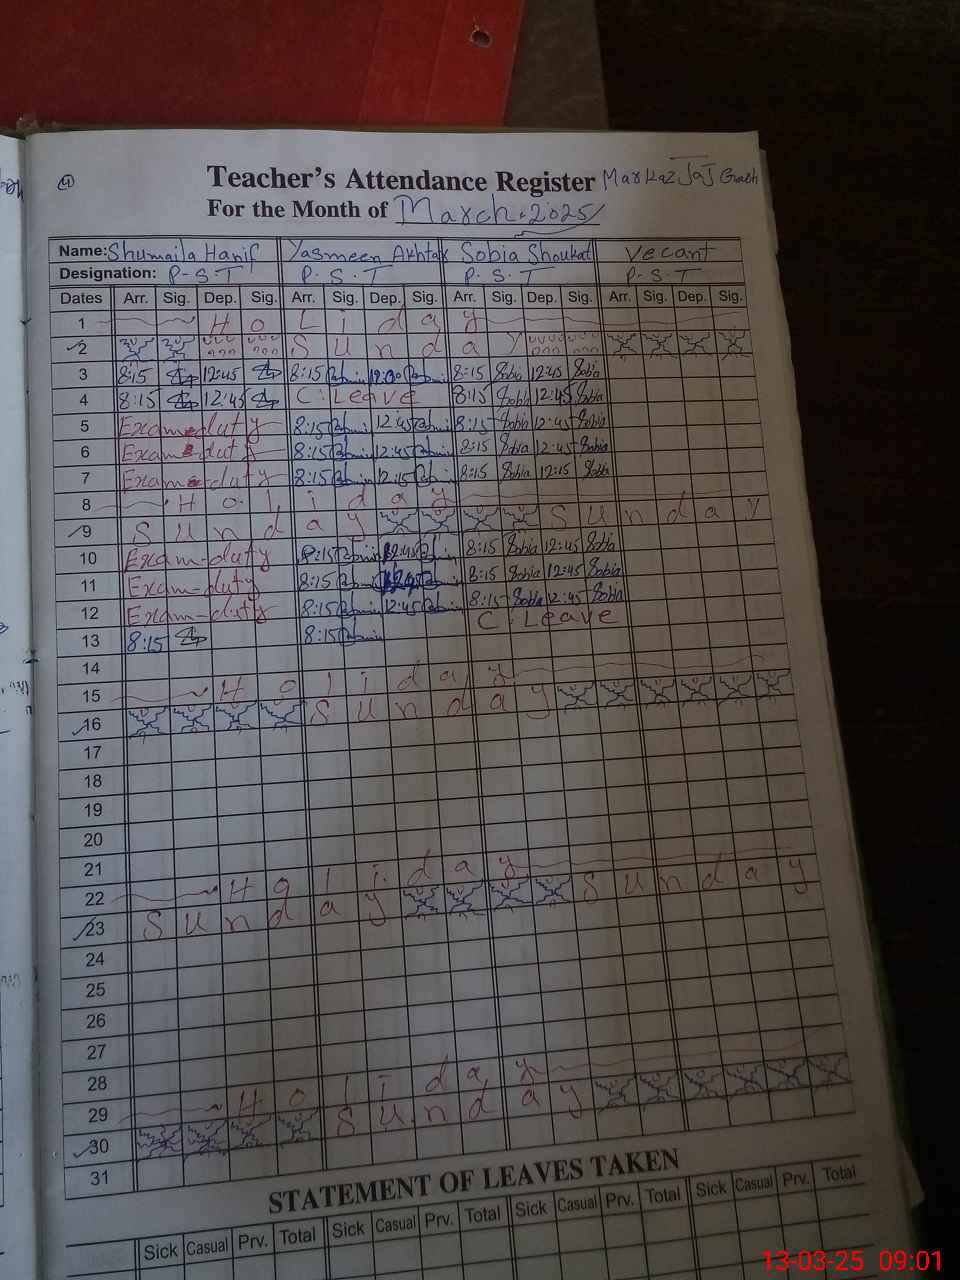 4
Teacher's Attendance Register Markaz JaJ Grah
For the Month of March.2025/
Name: Shumaila Hanif Yasmeen Akhtar Sobia Shoukat Vecant
Designation: P-S-T P.S.T P.S.T P-S-T
Dates Arr. Sig. Dep. Sig. Arr. Sig. Dep. Sig. Arr. Sig. Dep. Sig. Arr. Sig. Dep. Sig.
1 Holiday
2 Sunday
3 8:15 12:45 8:15 8:15 Sobia 12:45 Sobia
4 8:15 12:45 C. Leave 8:15 Sobia 12:45 Sobia
5 Exam-duty 8:15 12:45 8:15 Sobia 12:45 Sobia
6 Exam-duty 8:15 12:45 8:15 Sobia 12:45 Sobia
7 Exam-duty 8:15 12:15 8:15 Sobia 12:15 Sobia
8 Holiday
9 Sunday Sunday
10 Exam-duty 8:15 12:45 8:15 Sobia 12:45 Sobia
11 Exam-duty 8:15 8:15 Sobia 12:45 Sobia
12 Exam-duty 8:15 12:45 8:15 Sobia 12:45 Sobia
13 8:15 8:15 C. Leave
14
15 Holiday
16 Sunday
17
18
19
20
21
22 Holiday
23 Sunday Sunday
24
25
26
27
28
29 Holiday
30 Sunday
31
STATEMENT OF LEAVES TAKEN
Sick Casual Prv. Total Sick Casual Prv. Total Sick Casual Prv. Total Sick Casual Prv. Total
13-03-25 09:01